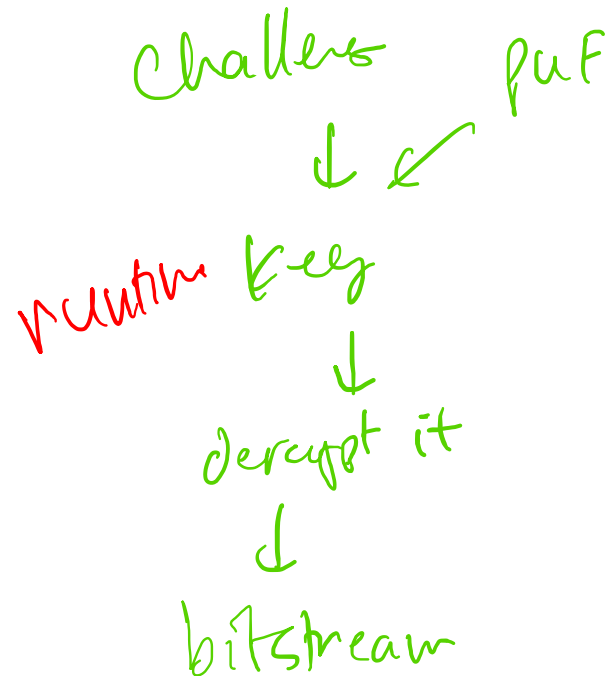 challens PUF
runtim key
decrypt it
bitstream